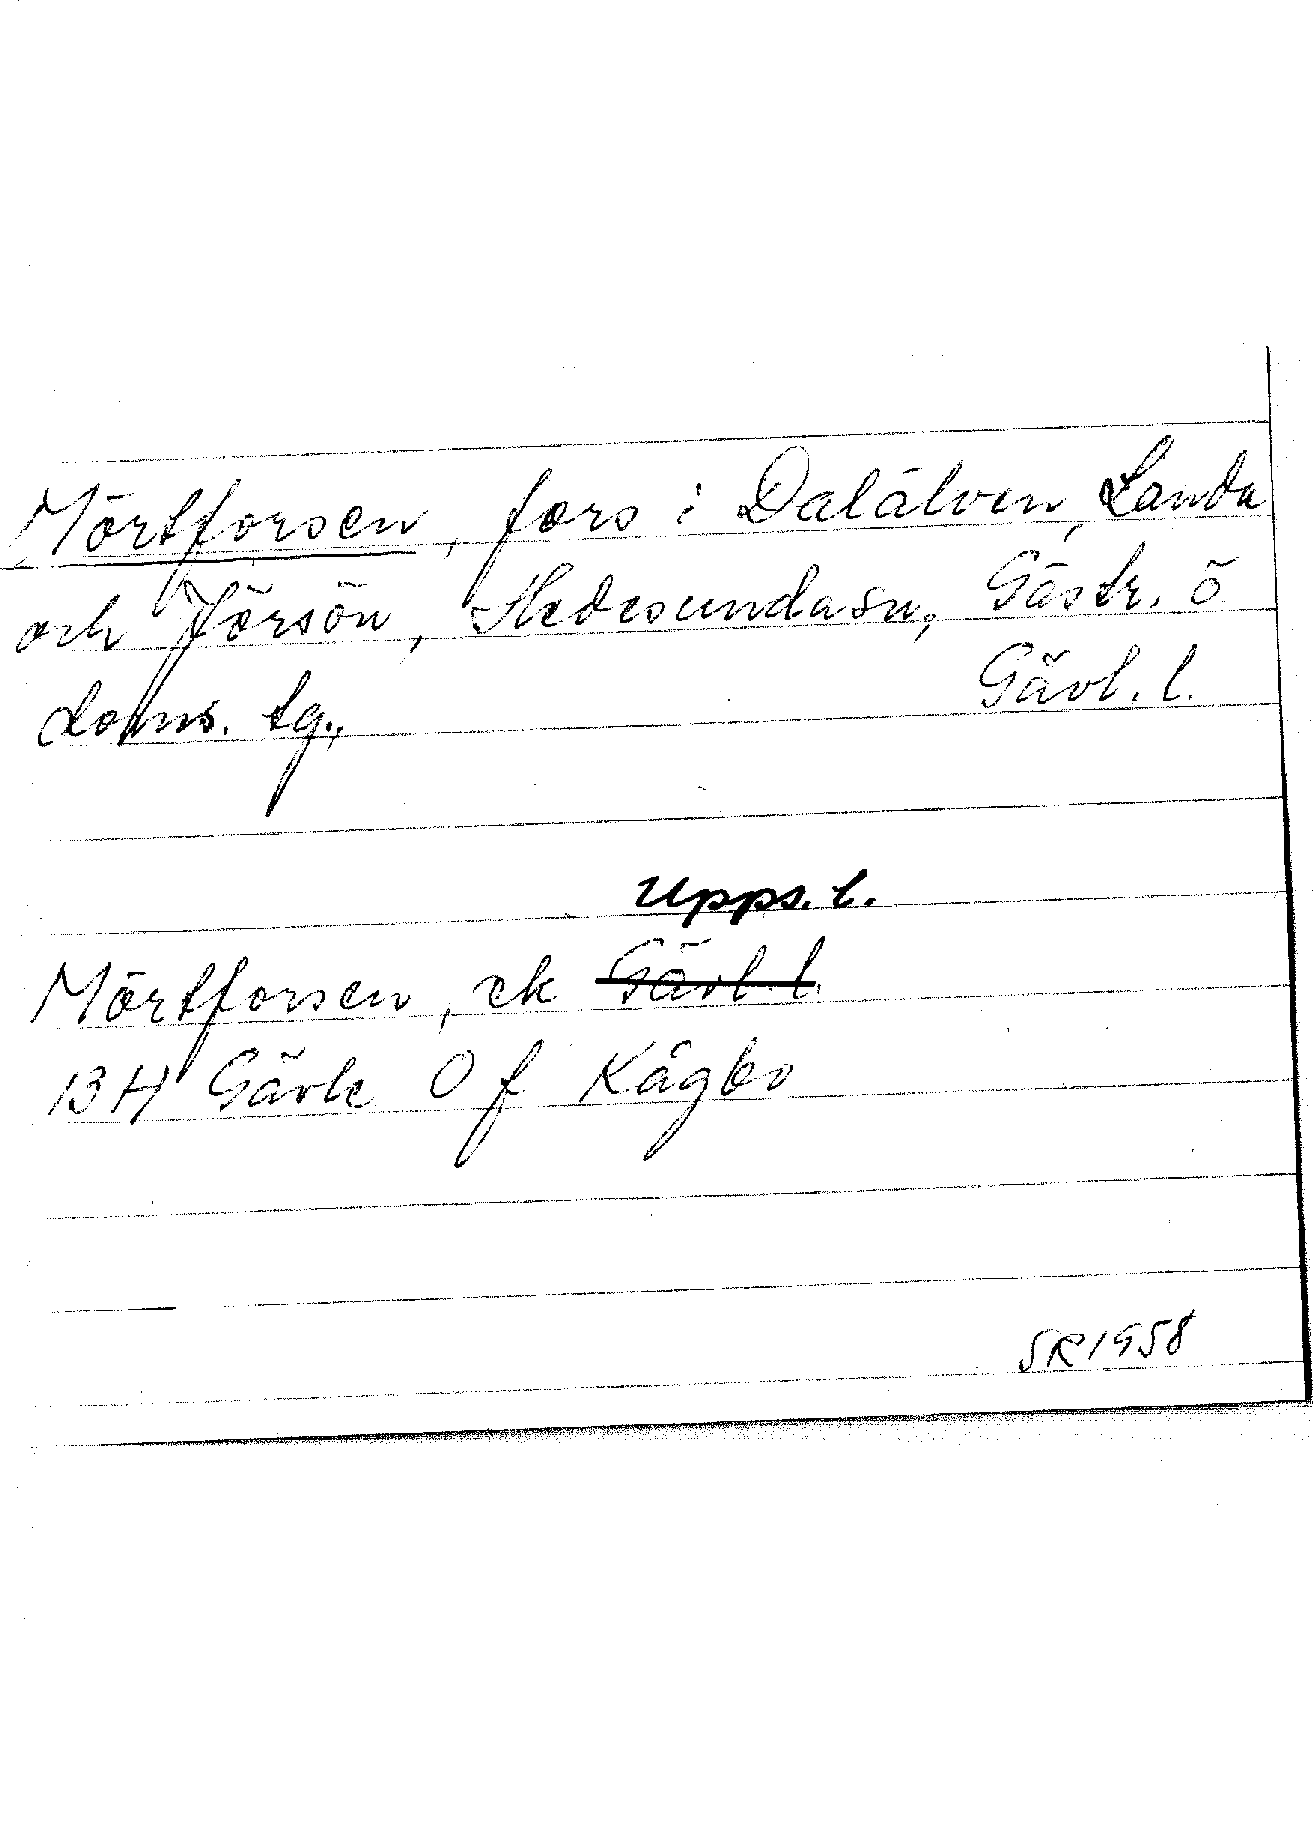 Mörtforsen, fors i Dalälven, Landa
och Jörsön, Hedesunda sn, Gästr. ö
doms. tg., Gävl. l.
Upps. l.
Mörtforsen, ek Gävl. l.
13 H Gävle 0 f Kågbo
SR 1958